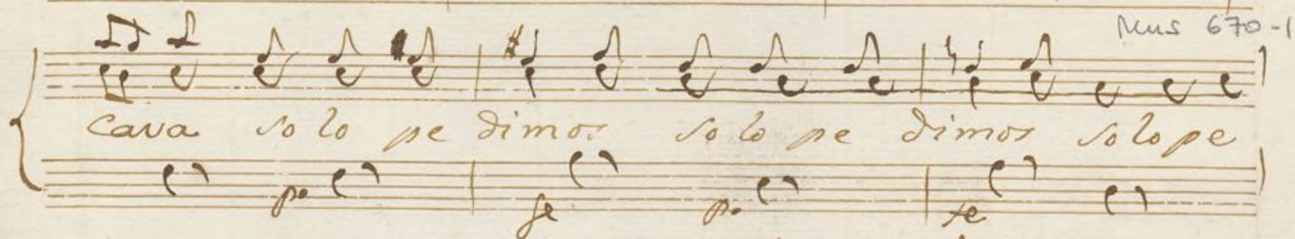 Mus 670-1
cava solo pe dimos solo pe dimos solo pe
po fe po fe